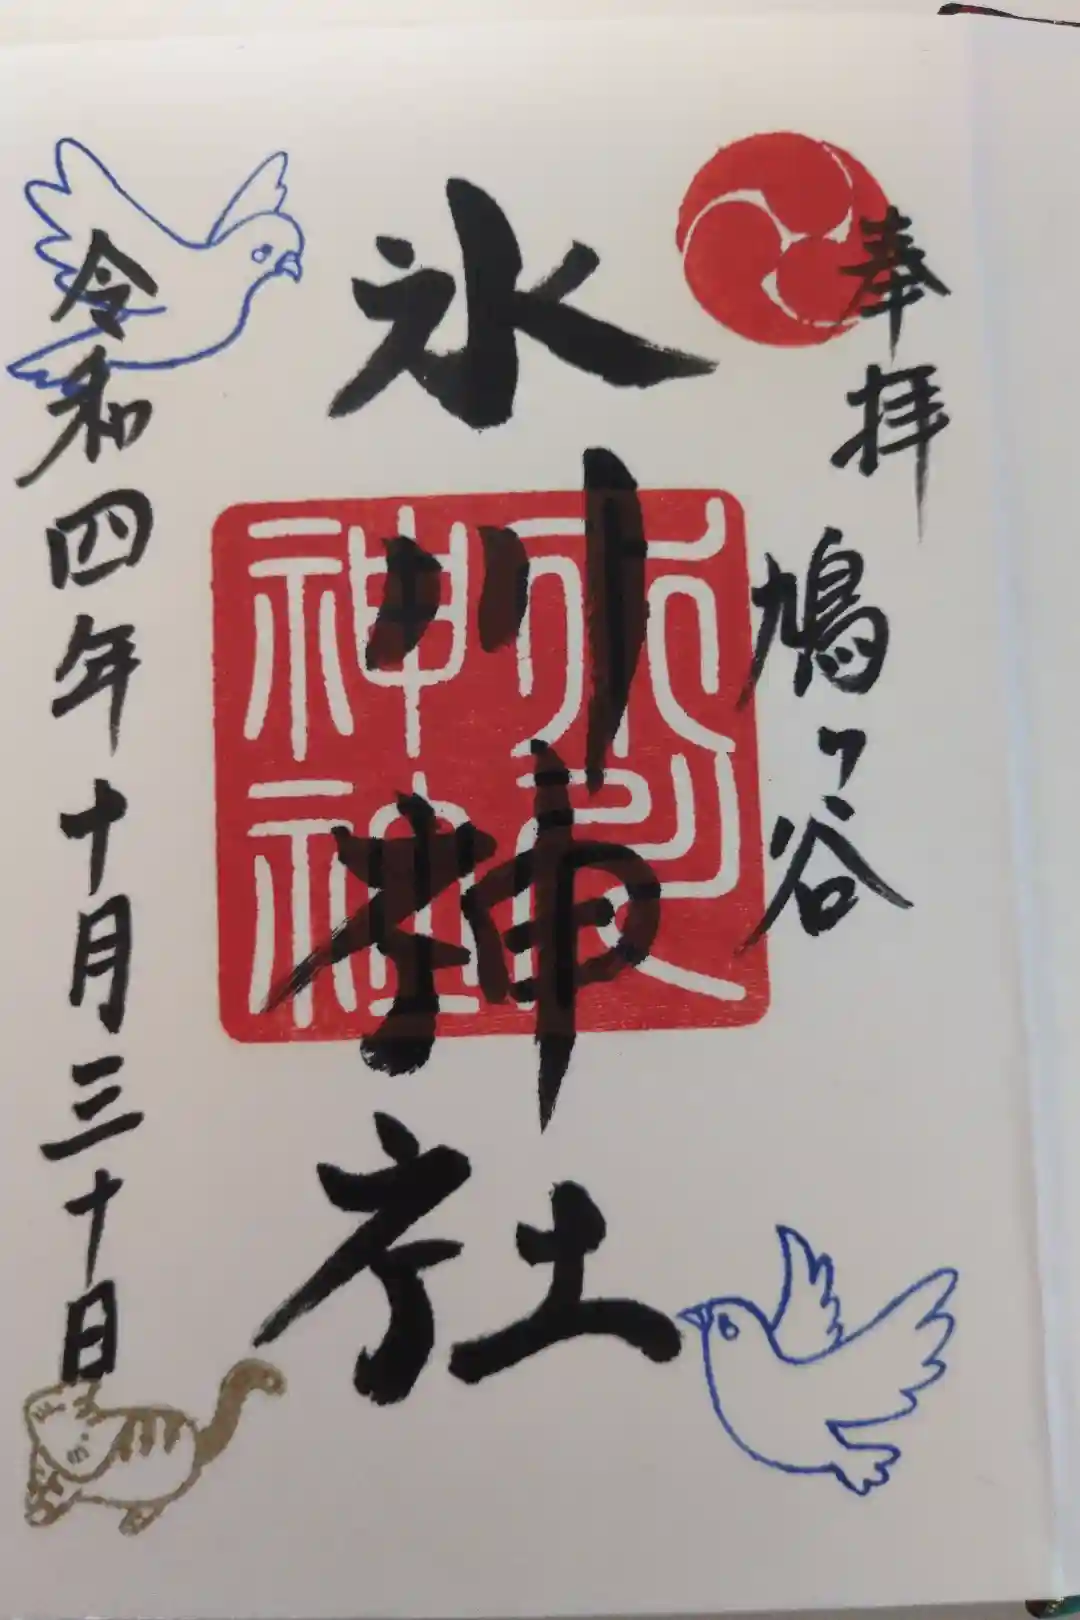 奉拝
鳩ヶ谷
氷川神社
氷川神社
令和四年十月三十日